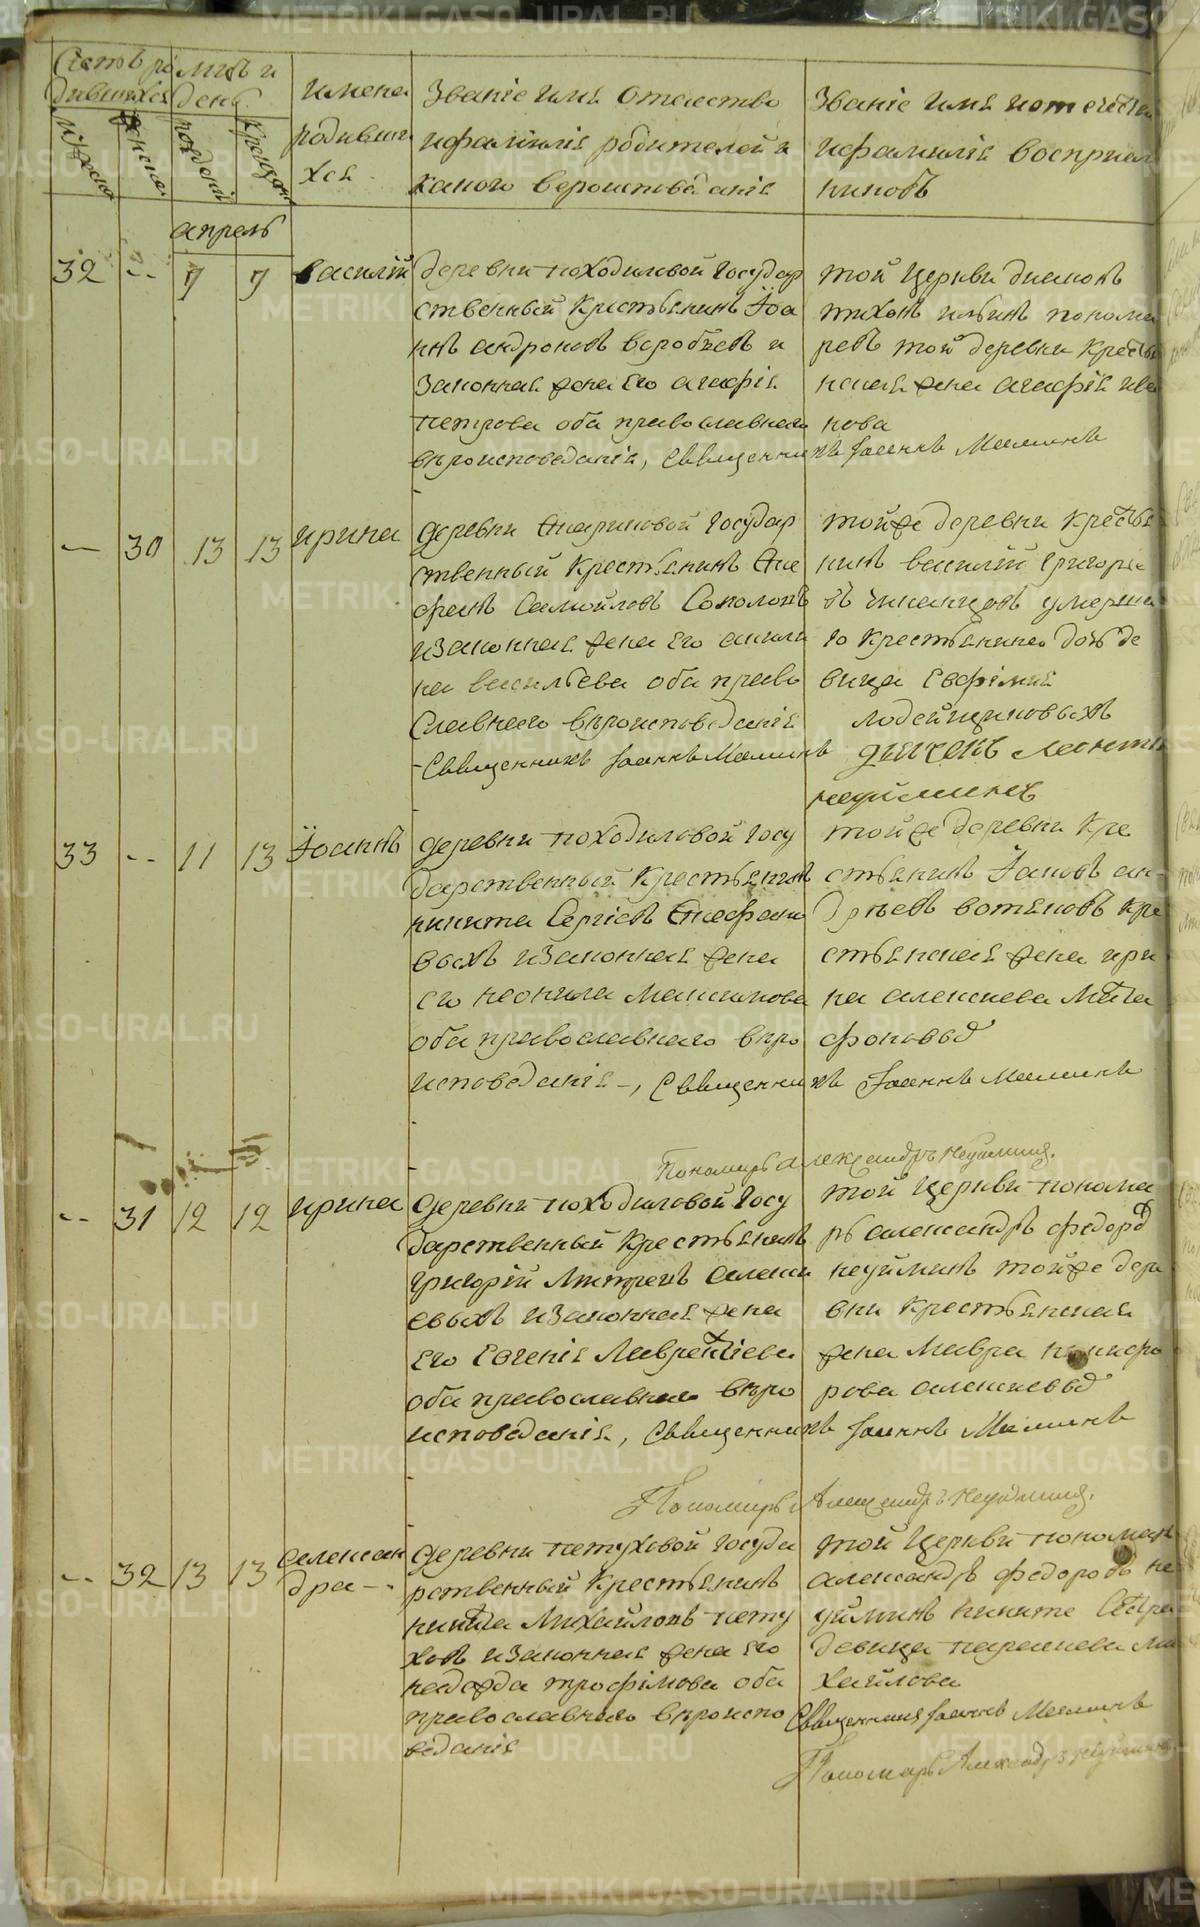 Счетъ ро мцъ и
дившихся день
мужеска женска рожденія крещенія
имена
родивши
хся
Званіе имя отечество
ифамилія родителей и
какого вероисповеданія
Званіе имя иотечество
ифамилія восприем
никовъ
апрель
32 -- 7 7 василій
деревни походиловой государ
ственный крестьянинъ Іоа
ннъ андроновъ воробьевъ и
законная жена его агафія
петрова оба православнаго
вѣроисповеданія, Священникъ Іоаннъ Маминъ
той церкви диаконъ
тихонъ ильинъ понома
ревъ той деревни кресть
нская жена агафія ива
нова
-- 30 13 13 ирина
деревни государ
ственный крестьянинъ Сте
фанъ Самойловъ Соколовъ
изаконная жена его акили
на васильева оба право
славнаго вѣроисповеданія
Священникъ Іоаннъ Маминъ
тойже деревни крестья
нинъ василий григорье
въ умерша
го крестьянина дочь де
вица евфімия
лодейщиковыхъ
дьяконъ
неуйминъ
33 -- 11 13 Іоаннъ
деревни походиловой госу
дарственный крестьянинъ
никита Сергіевъ Стефано
выхъ изаконная жена
его неонила Максимова
оба православнаго вѣро
исповеданія -, Священникъ Іоаннъ Маминъ
тойже деревни кре
стьянинъ Іаковъ ан-
дрѣевъ вотяковъ кре
стьянская жена ири
на алексиева
фоновыхъ
Пономарь александръ неуйминъ.
-- 31 12 12 ирина
деревни походиловой госу
дарственный крестьянинъ
григорій Дмитревъ алекси
евыхъ изаконная жена
его евгенія Лаврентіева
оба православнаго вѣро
исповеданія, Священникъ Іоаннъ Маминъ
той церкви понома
рь александръ федоровъ
неуйминъ тойже дере
вни крестьянская
жена Мавра никифо
рова алексиевыхъ
Пономарь Александръ Неуйминъ.
-- 32 13 13 алексан
дра --
деревни петуховой госуда
рственный крестьянинъ
никита Михайловъ пету
ховъ изаконная жена его
надежда трофімова оба
православнаго вѣроиспо
веданія
той церкви пономарь
александръ федоровъ не
уйминъ никите сестра
девица параскева ми
хайлова
Священникъ Іоаннъ Маминъ
Пономарь Александръ Неуйминъ
METRIKI.GASO-URAL.RU